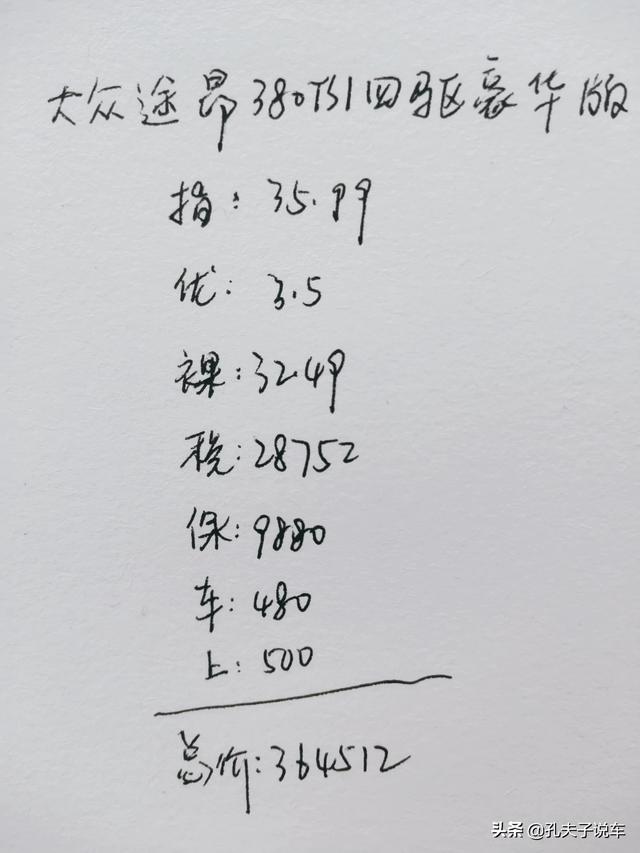 大众途昂380TSI四驱豪华版
指：35.99
优：3.5
裸：32.49
税：28752
保：9880
车：480
上：500
总价：364512
头条 @孔夫子说车